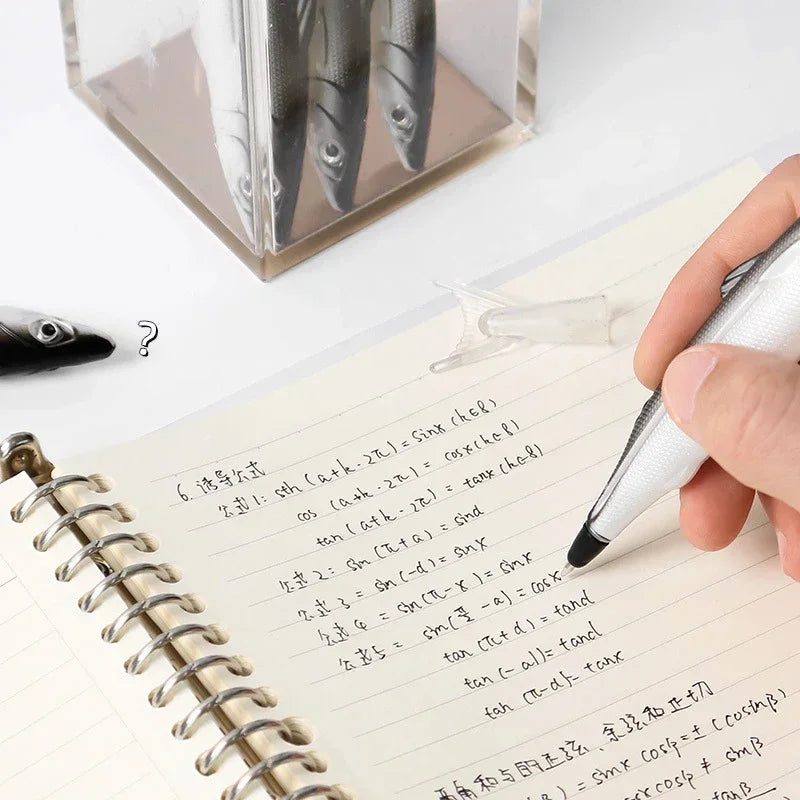 ?
6. 诱导公式
公式1: sth (a+k·2π) = sinx (k∈8)
cos (a+k·2π) = cosx (k∈8)
tan (a+k·2π) = tanx (k∈8)
公式2: sin (π+a) = sind
公式3 = sin(-d) = sinx
公式4 = sin(π-x) = sinx
公式5 = sin(π/2 -a) = cosx
tan (π+d) = tand
tan (-a)) = tand
tan (π-d)= tanx
两角和与的正弦、余弦和正切
β) = sinx cosβ=± (cosinβ)
xcosβ ≠ sinβ
tanβ